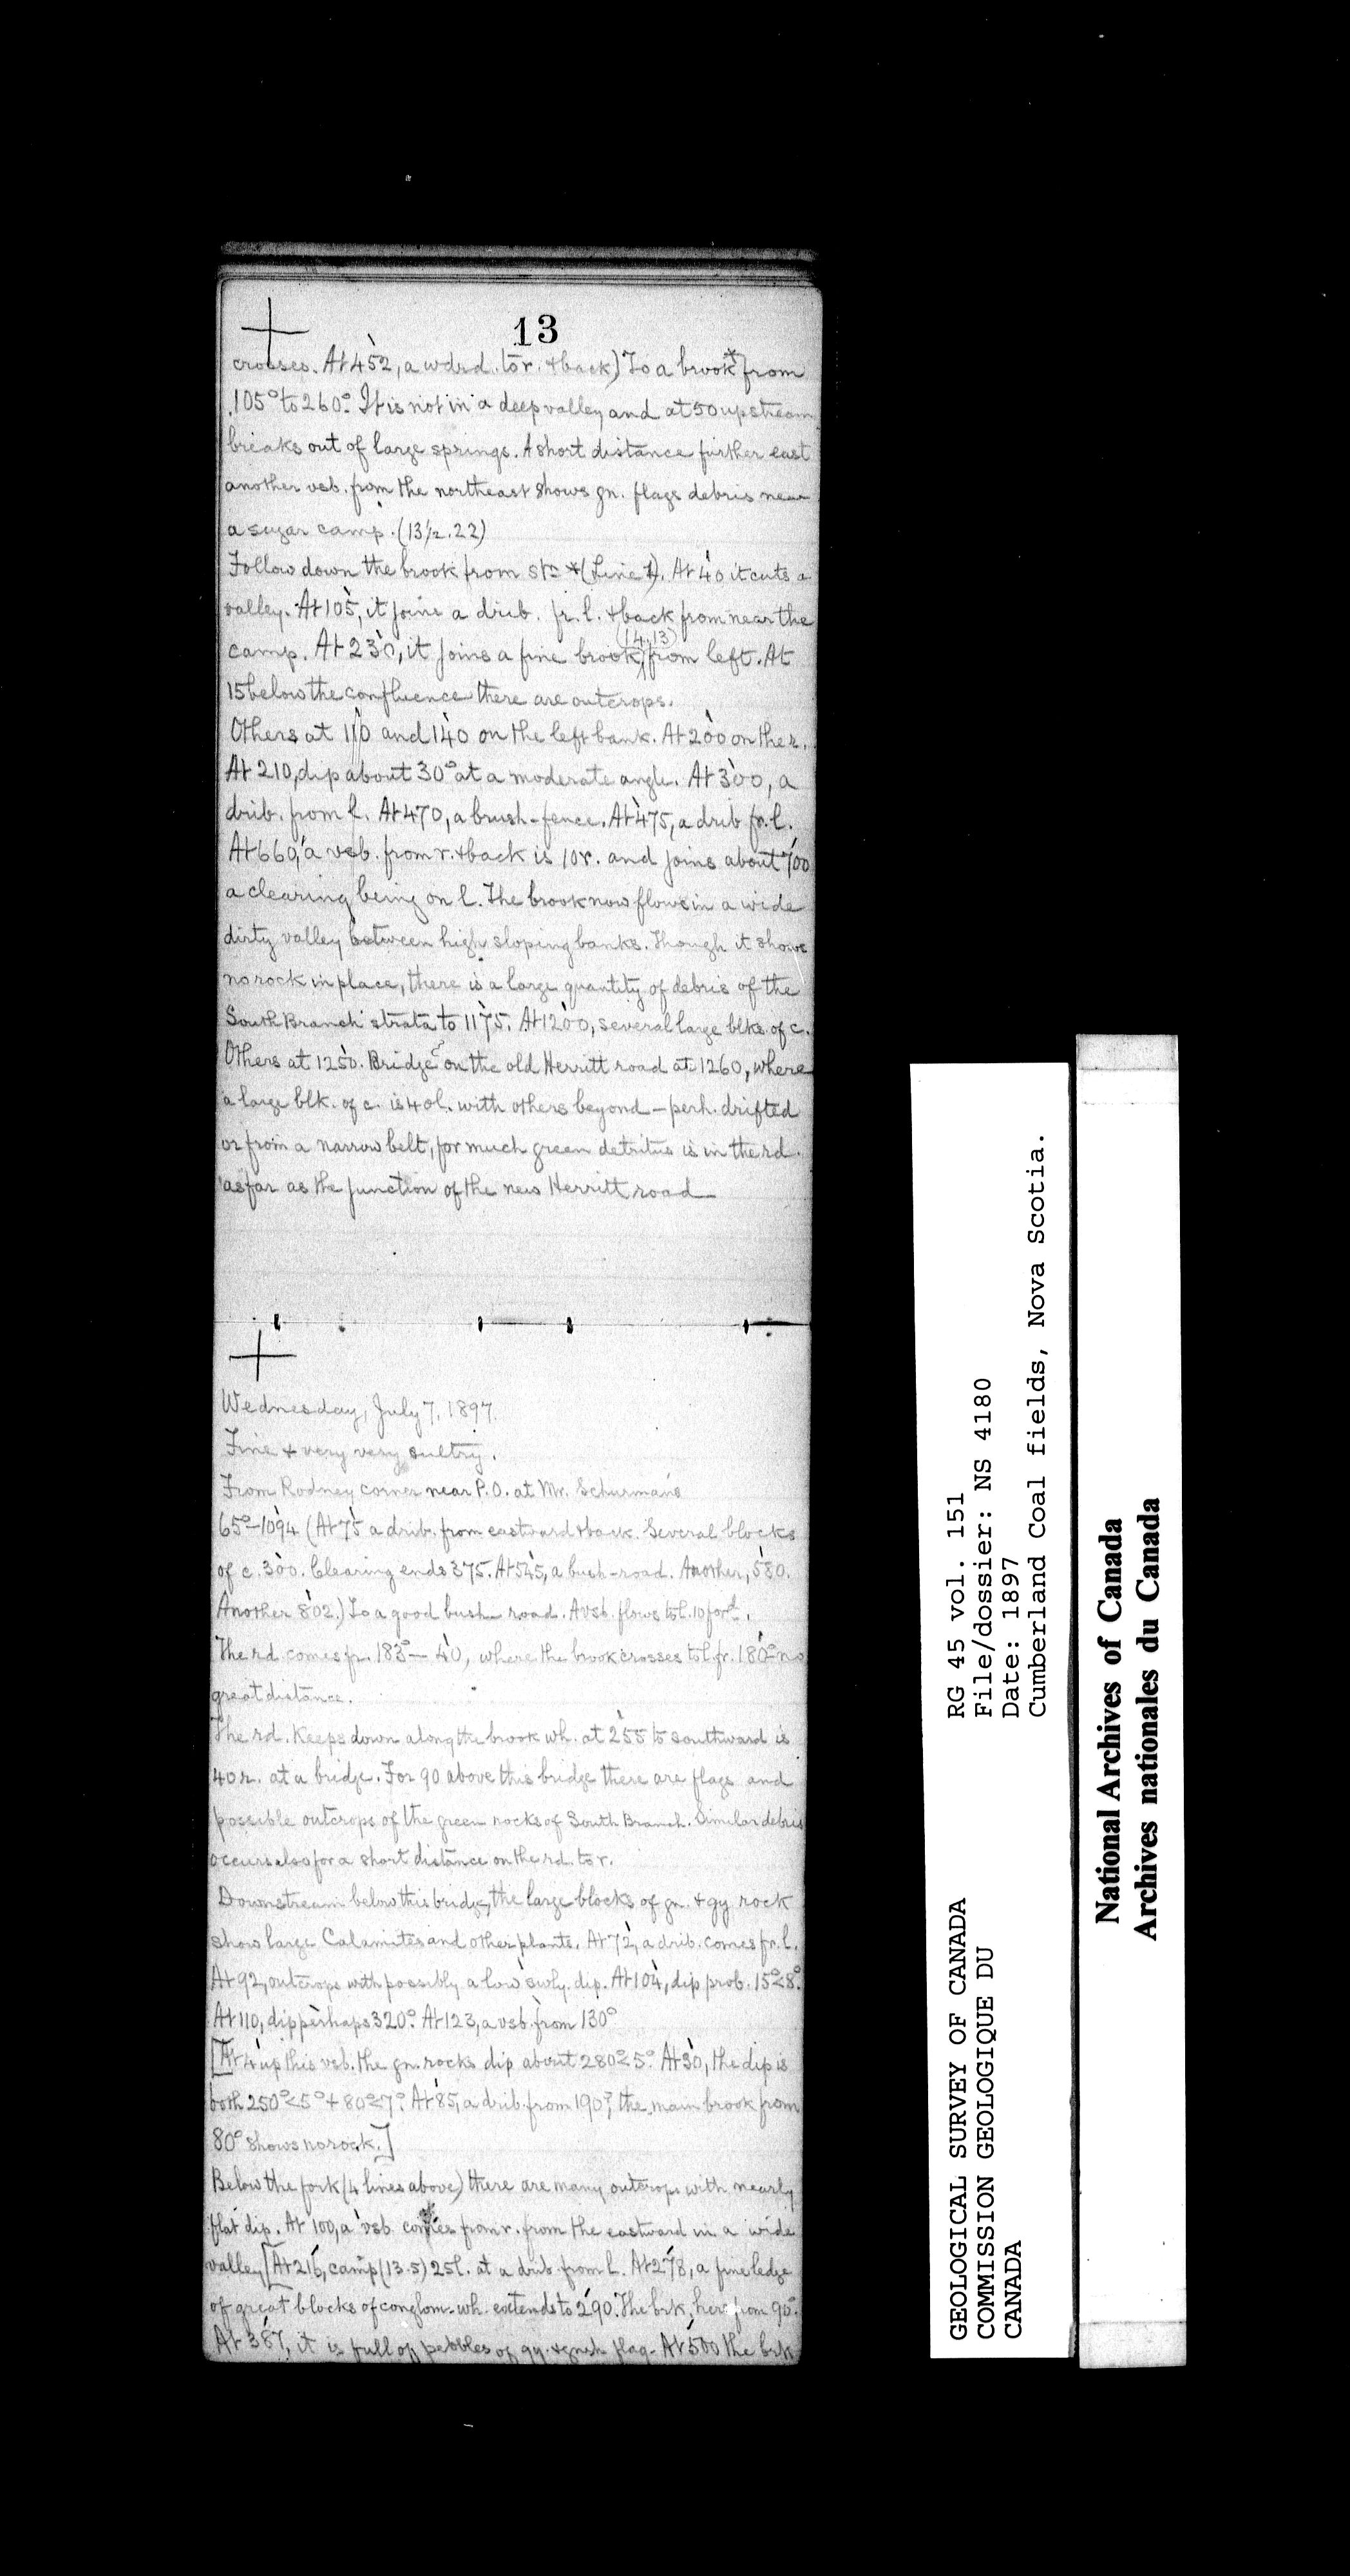 13
crosses. At 452, a wdrd. to r. & back) To a brook* from
105° to 260°. It is not in a deep valley and at 50 upstream
breaks out of large springs. A short distance further east
another vsb. from the northeast shows gn. flags debris near
a sugar camp. (13½.22)
Follow down the brook from stn * (Line 1). At 40 it cuts a
valley. At 105, it joins a drib. fr. l. & back from near the
camp. At 230, it joins a fine brook (14.13) from left. At
15 below the confluence there are outcrops.
Others at 110 and 140 on the left bank. At 200 on the r.
At 210, dip about 30° at a moderate angle. At 300, a
drib. from l. At 470, a brush-fence. At 475, a drib fr. l.
At 660, a vsb. from r. & back is 10 r. and joins about 700
a clearing being on l. The brook now flows in a wide
dirty valley between high sloping banks. Though it shows
no rock in place, there is a large quantity of debris of the
South Branch strata to 1175. At 1200, several large blks. of c.
Others at 1250. Bridge on the old Herritt road at 1260, where
a large blk. of c. is 40 l. with others beyond - perh. drifted
or from a narrow belt, for much green detritus is in the rd.
as far as the junction of the new Herritt road
Wednesday, July 7, 1897.
Fine & very very sultry.
From Rodney corner near P.O. at Mr. Schurman's
65° - 1094 (At 75 a drib. from eastward & back. Several blocks
of c. 300. Clearing ends 375. At 545, a bush-road. Another, 580.
Another 802.) To a good bush road. A vsb. flows to l. 10 forwd.
The rd. comes fr. 183° - 40, where the brook crosses to l. fr. 180° no
great distance.
The rd. keeps down along the brook wh. at 255 to southward is
40 r. at a bridge. For 90 above this bridge there are flags and
possible outcrops of the green rocks of South Branch. Similar debris
occurs also for a short distance on the rd. to r.
Downstream below this bridge, the large blocks of gn. & gy rock
show large Calamites and other plants. At 72, a drib. comes fr. l.
At 92, outcrops with possibly a low swly. dip. At 104, dip prob. 15°<8°.
At 110, dip perhaps 320°. At 123, a vsb. from 130°
[At 4 up this vsb. the gn. rocks dip about 280°<5°. At 30, the dip is
both 250°<5° + 80°<7°. At 85, a drib. from 190°, the main brook from
80° shows no rock.]
Below the fork (4 lines above) there are many outcrops with nearly
flat dip. At 100, a vsb. comes from r. from the eastward in a wide
valley [At 216, camp (13.5) 25 l. at a drib. from l. At 278, a fine ledge
of great blocks of conglom. wh. extends to 290. The brk. here from 90°.
At 387, it is full of pebbles of gy. & gnsh flag. At 500 the brk
RG 45 vol. 151
File/dossier: NS 4180
Date: 1897
Cumberland Coal fields, Nova Scotia.
GEOLOGICAL SURVEY OF CANADA
COMMISSION GEOLOGIQUE DU
CANADA
National Archives of Canada
Archives nationales du Canada